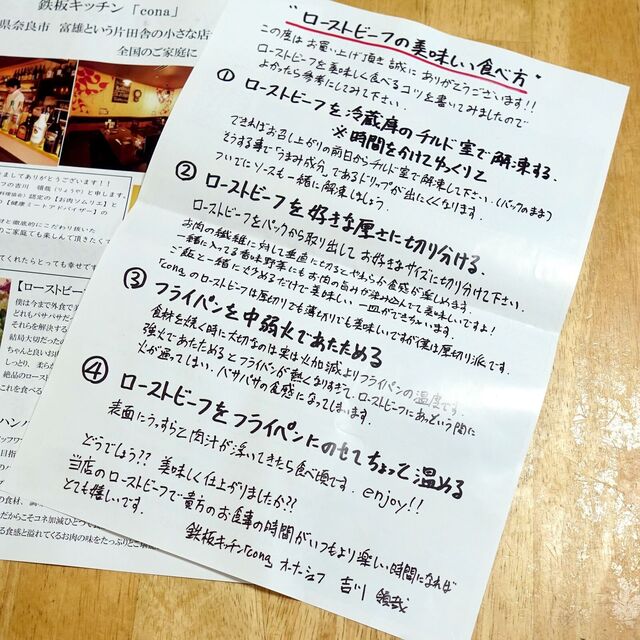 鉄板キッチン「cona」
県奈良市 富雄という片田舎の小さな店
全国のご家庭に
ましてありがとうございます！！
"ローストビーフの美味しい食べ方"
この度はお買い上げ頂き誠にありがとうございます!!
ローストビーフを美味しく食べるコツを書いてみましたので
よかったら参考にしてみて下さい.
① ローストビーフを冷蔵庫のチルド室で解凍する.
※時間をかけてゆっくりと
できればお召し上がりの前日からチルド室で解凍して下さい.(パックのまま)
そうする事で「うまみ成分」であるドリップが出にくくなります.
ついでにソースも一緒に解凍しましょう.
② ローストビーフを好きな厚さに切り分ける.
ローストビーフをパックから取り出してお好きなサイズに切り分けて下さい.
お肉の繊維に対して垂直に切るとやわらか食感が楽しめます.
一緒に入ってる香味野菜にもお肉の旨みが染み込んでて美味しいですよ!
ご飯と一緒にどうめるだけで美味しい一皿ができちゃいます
「cona」のローストビーフは厚切りでも薄切りでも美味しいですが僕は厚切り派です.
③ フライパンを中弱火であたためる
食材を焼く時に大切なのは実は火加減よりフライパンの温度です.
強火であたためるとフライパンが熱くなりすぎて、ローストビーフにあっという間に
火が通ってしまい、パサパサの食感になってしまいます.
④ ローストビーフをフライパンにのせてちょっと温める
表面にうっすらと肉汁が浮いてきたら食べ頃です. enjoy!!
どうでしょう?? 美味しく仕上がりましたか??
当店のローストビーフで貴方のお食事の時間がいつもより楽しい時間になれば
とても嬉しいです.
鉄板キッチン「cona」オーナーシェフ 吉川 領哉
【ローストビー
僕は今まで外食で
どれもパサパサだ
それらを解決する
ちゃんと良いお
しっとり、柔ら
絶品のロースト
これを食べる
だからこそコネ加減ひとつで
る食感と溢れてくるお肉の味をたっぷりとご